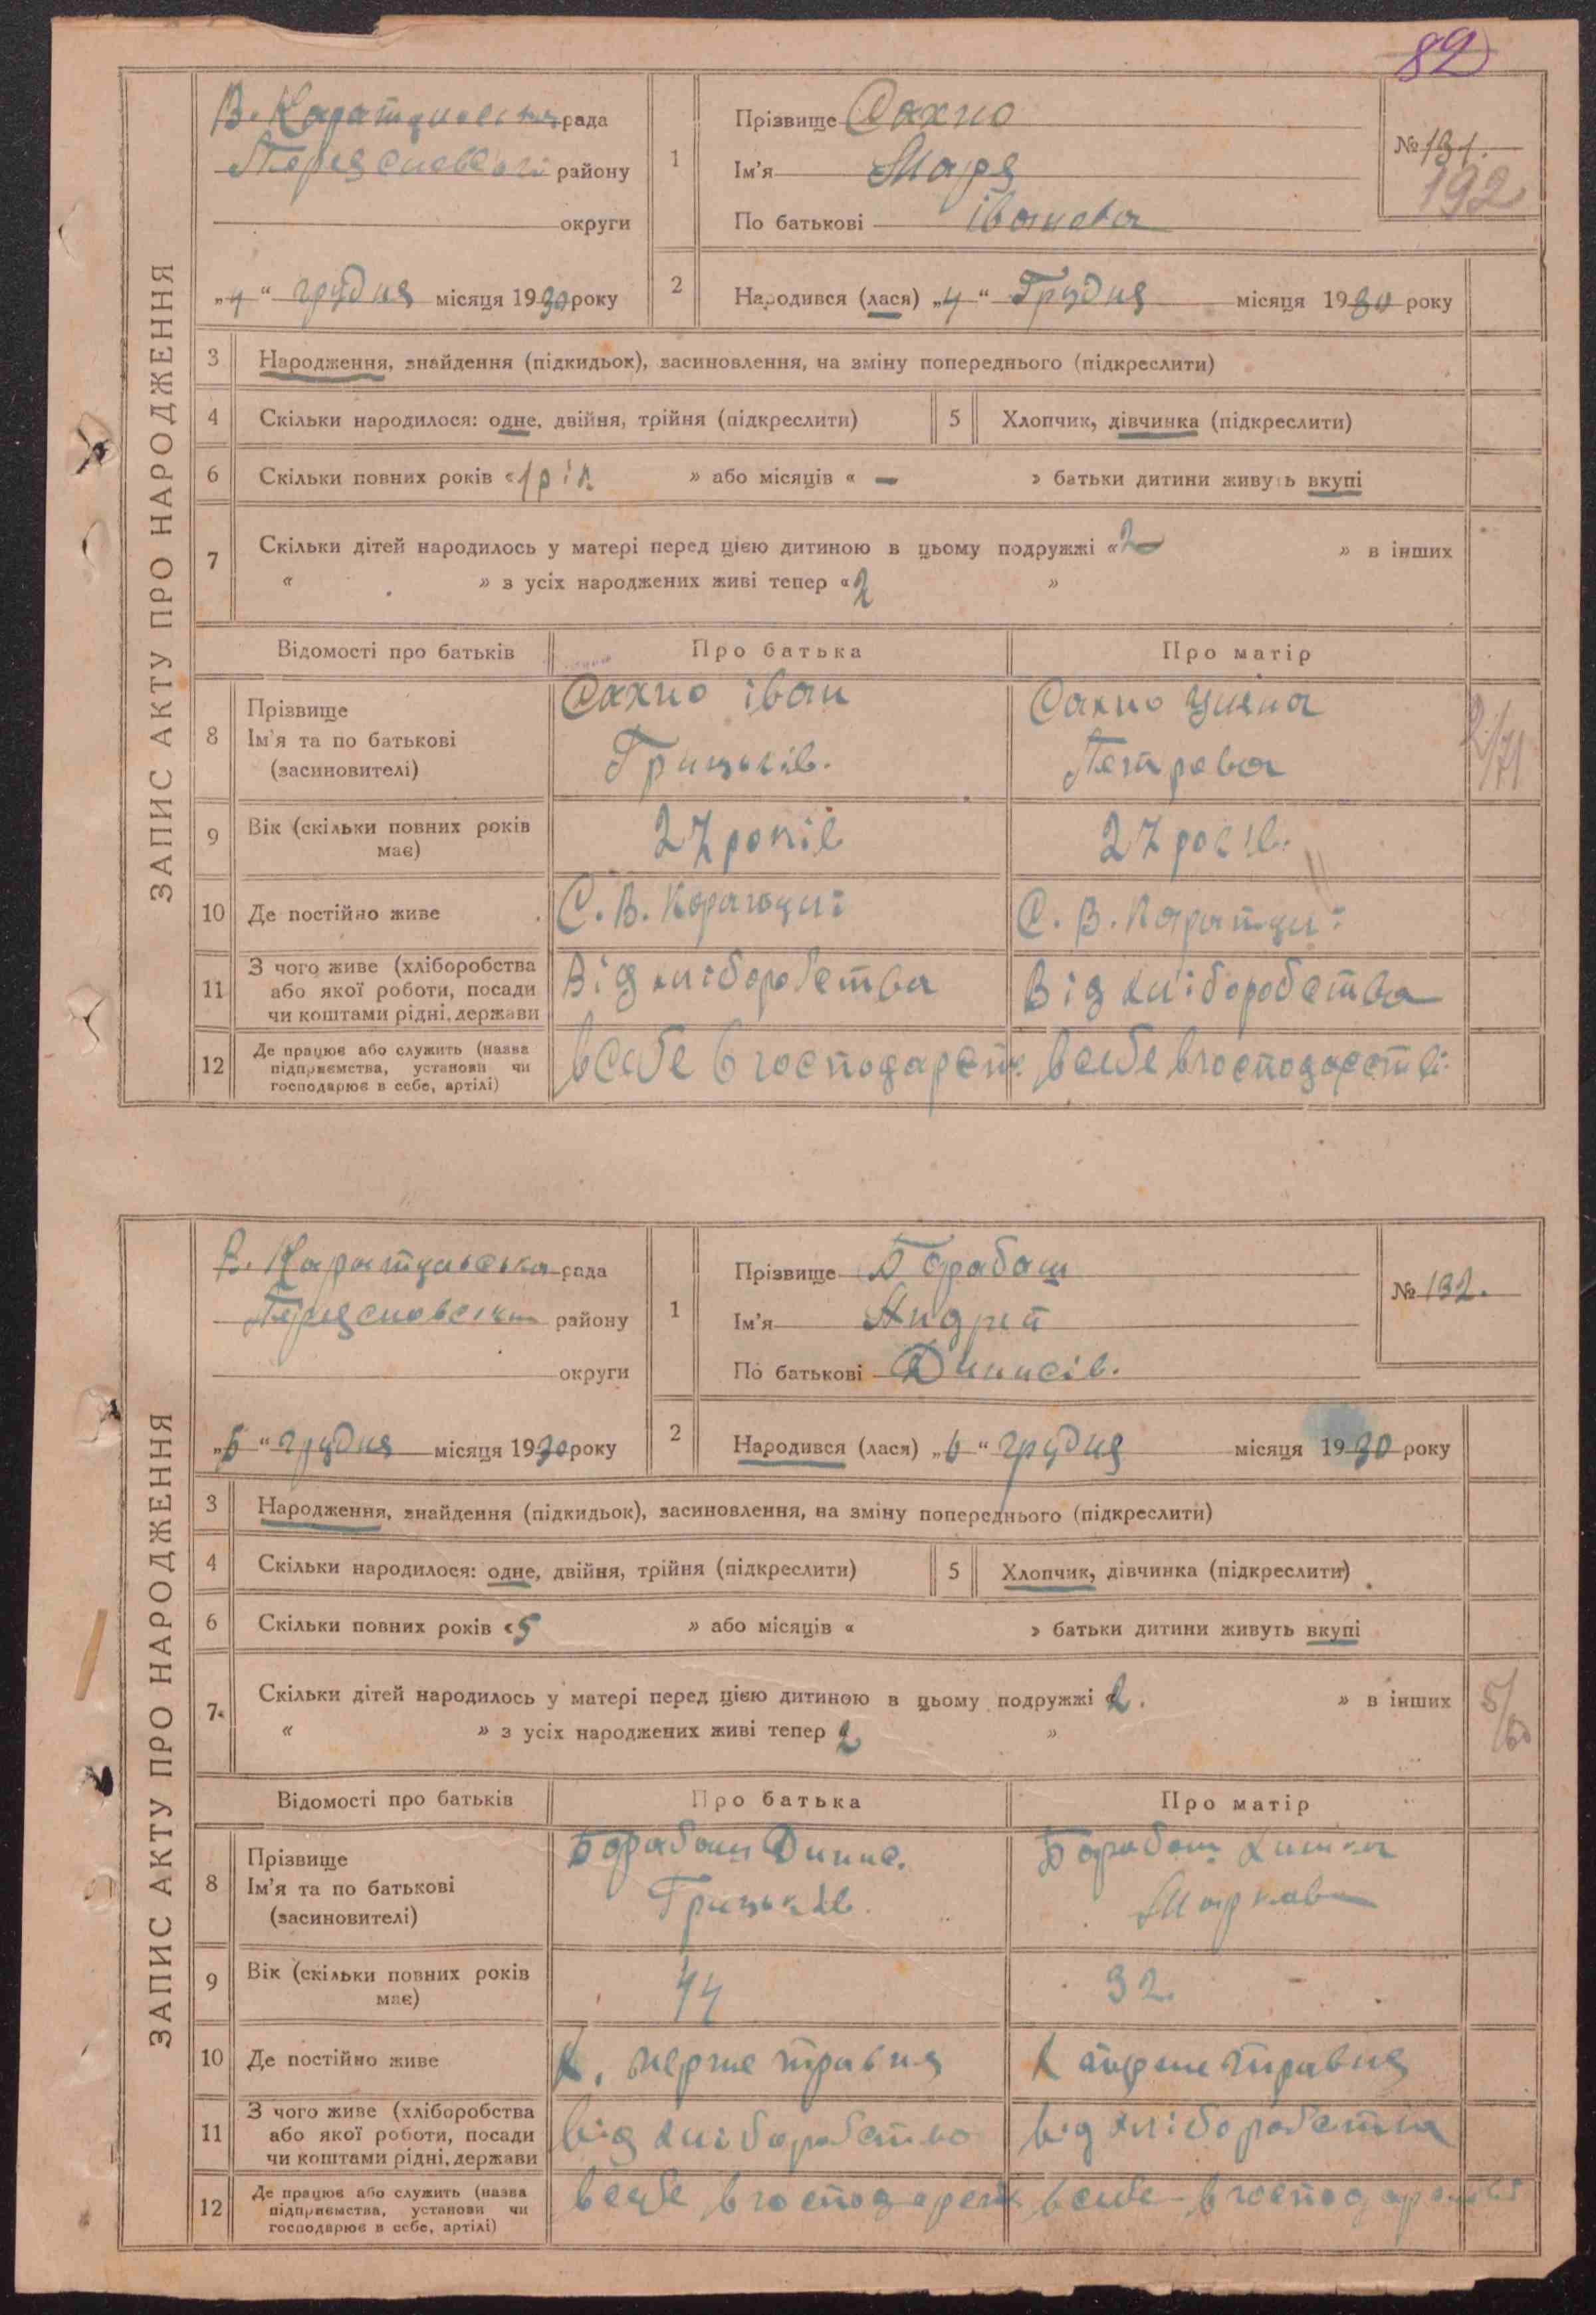 82
ЗАПИС АКТУ ПРО НАРОДЖЕННЯ
В. Каратульська рада
району
округи
„4“ грудня місяця 1930 року
1
Прізвище Сахно
Ім'я Марія
По батькові Іванова
№ 131.
192
2
Народився (лася) „4“ Грудня місяця 1930 року
3 Народження, знайдення (підкидьок), засиновлення, на зміну попереднього (підкреслити)
4 Скільки народилося: одне, двійня, трійня (підкреслити)
5 Хлопчик, дівчинка (підкреслити)
6 Скільки повних років «1 рік » або місяців « – » батьки дитини живуть вкупі
7 Скільки дітей народилось у матері перед цією дитиною в цьому подружжі «2 » в інших
« » з усіх народжених живі тепер «2 »
Відомості про батьків Про батька Про матір
8 Прізвище
Ім'я та по батькові
(засиновителі)
Сахно Іван
Грицьків.
Сахно
Петрова
9 Вік (скільки повних років
має)
27 років
27 років.
10 Де постійно живе
С. В.
С. В.
11 З чого живе (хліборобства
або якої роботи, посади
чи коштами рідні, держави
Від хліборобства
Від хліборобства
12 Де працює або служить (назва
підприємства, установи чи
господарює в себе, артілі)
в себе в господарств
в себе в господарстві
ЗАПИС АКТУ ПРО НАРОДЖЕННЯ
В. Каратульська рада
району
округи
„6“ грудня місяця 1930 року
1
Прізвище Барабаш
Ім'я Андрій
По батькові Динисів.
№ 132.
2
Народився (лася) „6“ грудня місяця 1930 року
3 Народження, знайдення (підкидьок), засиновлення, на зміну попереднього (підкреслити)
4 Скільки народилося: одне, двійня, трійня (підкреслити)
5 Хлопчик, дівчинка (підкреслити)
6 Скільки повних років «5 » або місяців « » батьки дитини живуть вкупі
7 Скільки дітей народилось у матері перед цією дитиною в цьому подружжі «2. » в інших
« » з усіх народжених живі тепер «2 »
Відомості про батьків Про батька Про матір
8 Прізвище
Ім'я та по батькові
(засиновителі)
Барабаш Динис.
Грицьків.
Барабаш
Маркова
9 Вік (скільки повних років
має)
44
32.
10 Де постійно живе
Х. перше травня
Х перше травня
11 З чого живе (хліборобства
або якої роботи, посади
чи коштами рідні, держави
від хліборобство
від хліборобства
12 Де працює або служить (назва
підприємства, установи чи
господарює в себе, артілі)
в себе в господарств
в себе в господарстві